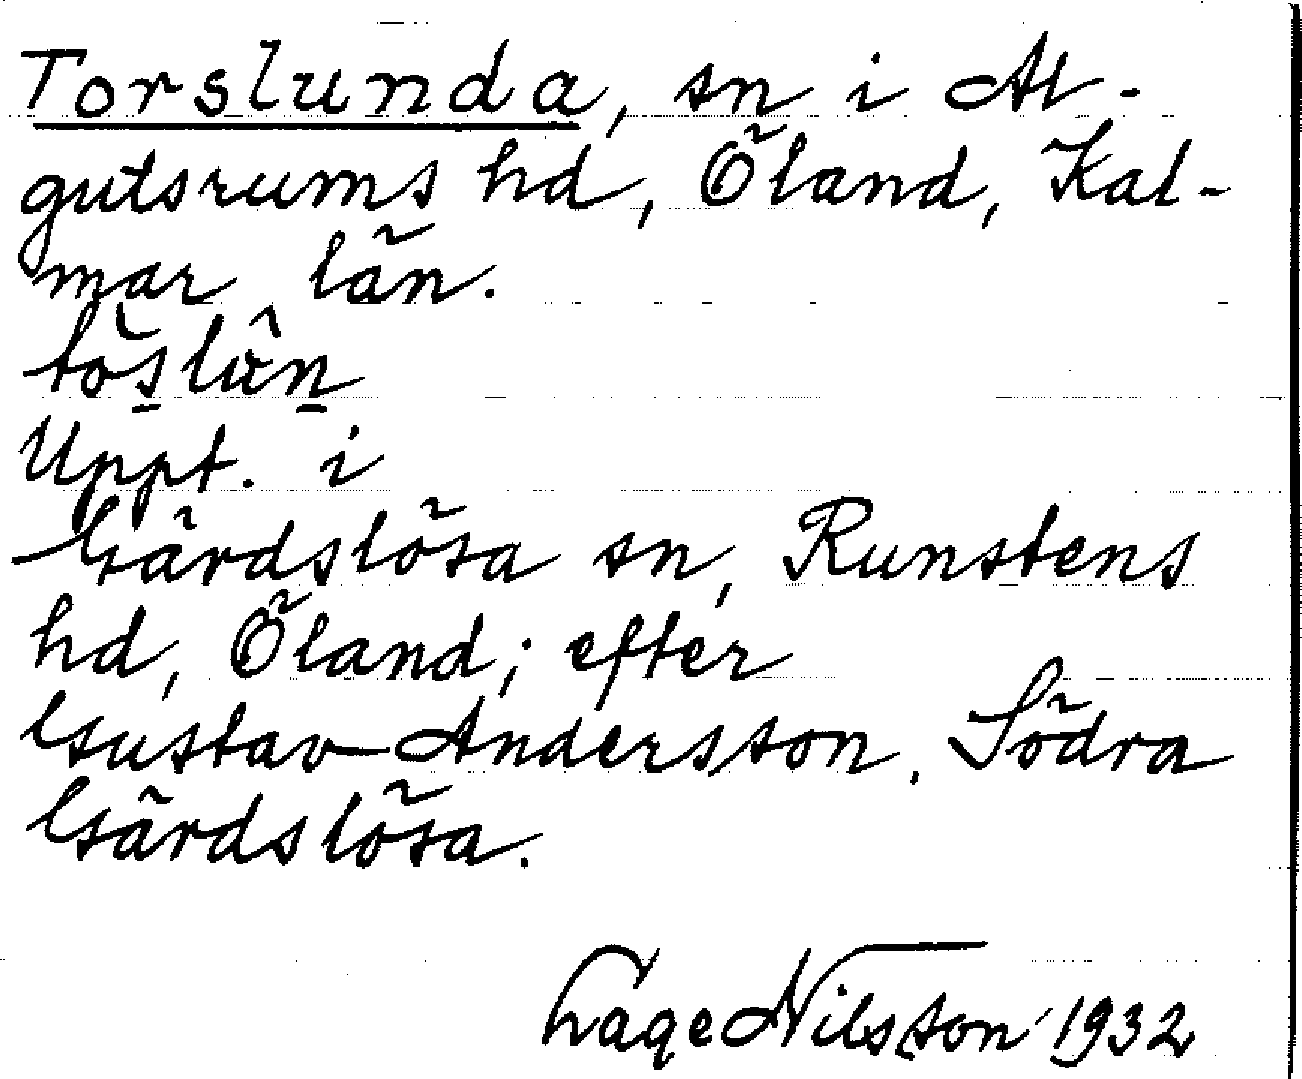 Torslunda, sn i Al-
gutsrums hd, Öland, Kal-
mar län.
Uppt. i
Gärdslösa sn, Runstens
hd, Öland; efter
Gustav Andersson, Södra
Gärdslösa.
Nilsson 1932